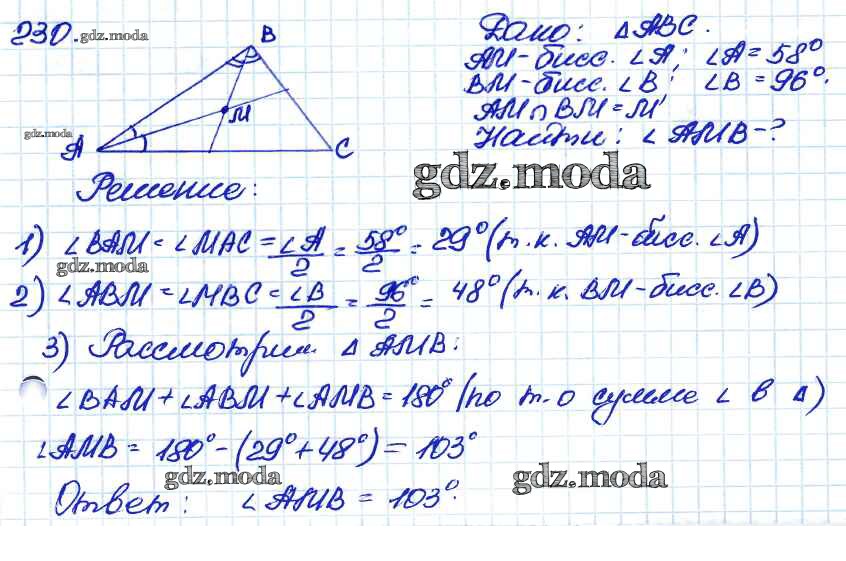 230. gdz.moda
B
M
gdz.moda
A
C
Дано: Δ ABC.
AM - бисс. ∠A; ∠A = 58°
BM - бисс. ∠B; ∠B = 96°.
AM ∩ BM = M
Найти: ∠ AMB - ?
gdz.moda
Решение:
1) ∠BAM = ∠MAC = ∠A/2 = 58°/2 = 29° (т.к. AM - бисс. ∠A)
gdz.moda
2) ∠ABM = ∠MBC = ∠B/2 = 96°/2 = 48° (т.к. BM - бисс. ∠B)
3) Рассмотрим Δ AMB:
∠BAM + ∠ABM + ∠AMB = 180° (по т. о сумме ∠ в Δ)
∠AMB = 180° - (29° + 48°) = 103°
gdz.moda
gdz.moda
Ответ: ∠AMB = 103°.